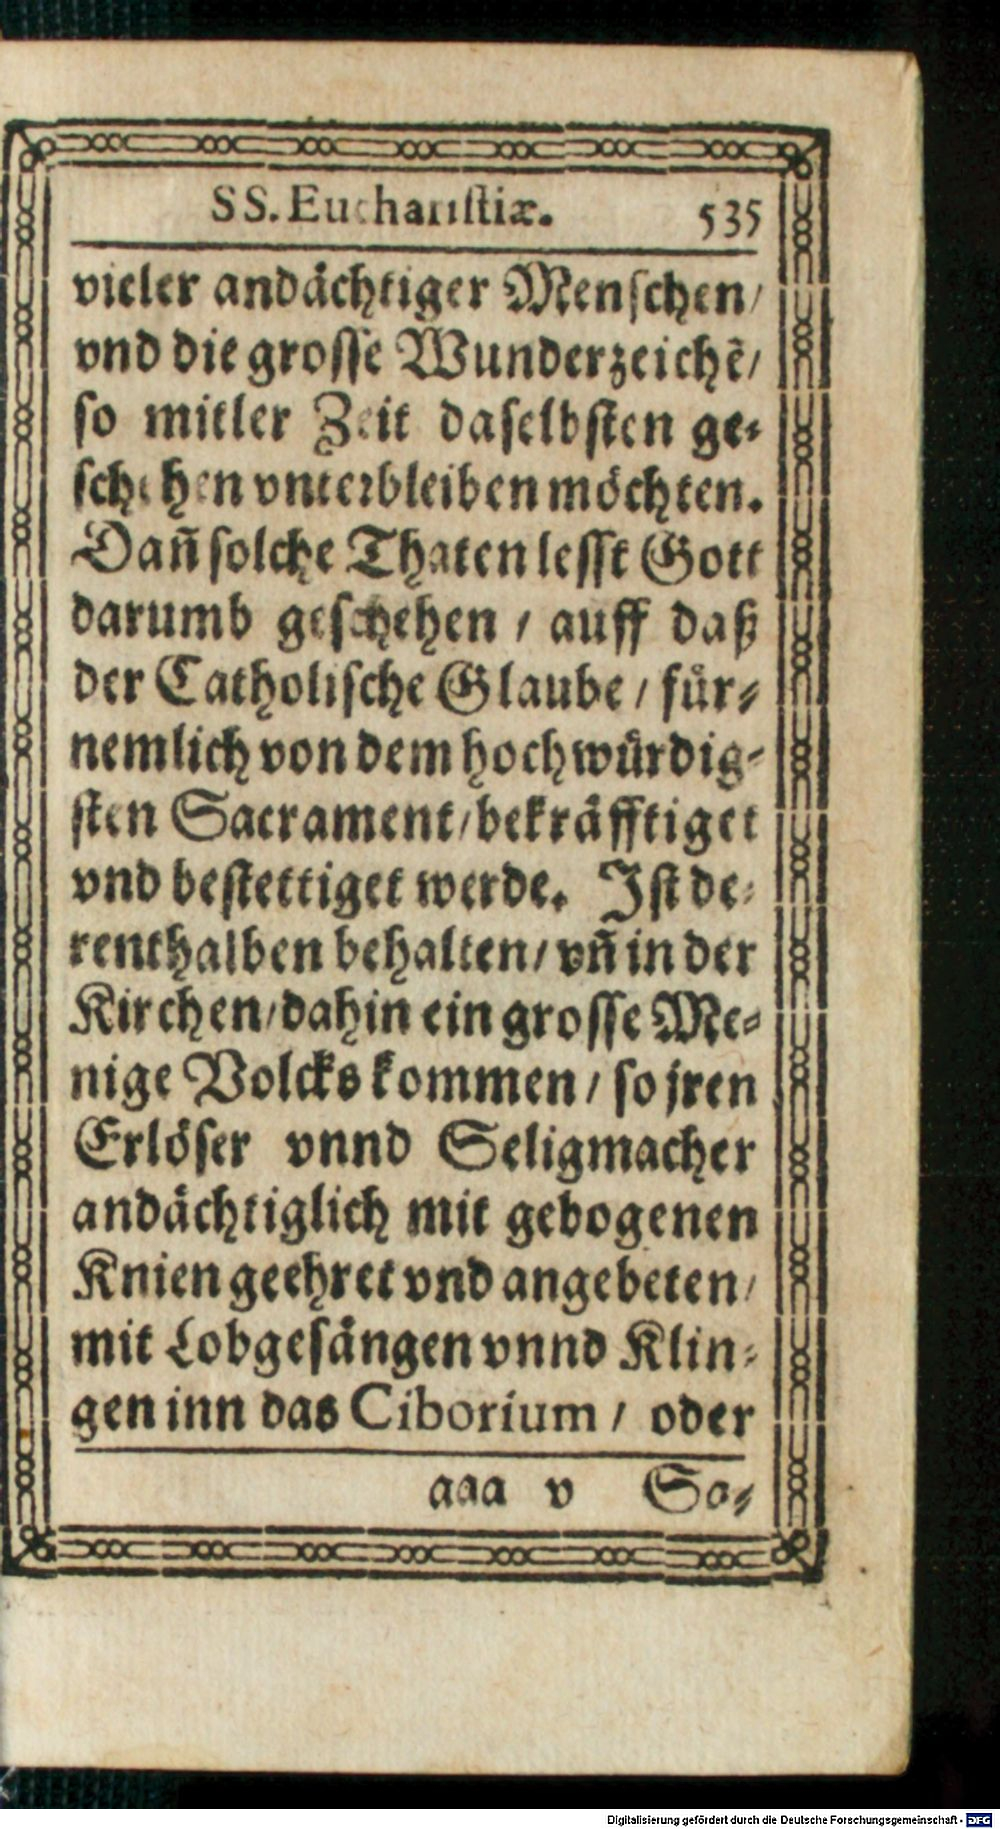 SS. Eucharistiæ. 535
vieler andächtiger Menschen/
vnd die grosse Wunderzeichẽ/
so mitler Zeit daselbsten ge-
schehen vnterbleiben möchten.
Dañ solche Thaten lesst Gott
darumb geschehen / auff daß
der Catholische Glaube / für-
nemlich von dem hochwürdig-
sten Sacrament/bekräfftiget
vnd bestettiget werde. Ist de-
renthalben behalten/ vñ in der
Kirchen/dahin ein grosse Me-
nige Volcks kommen / so jren
Erlöser vnnd Seligmacher
andächtiglich mit gebogenen
Knien geehret vnd angebeten/
mit Lobgesängen vnnd Klin-
gen inn das Ciborium / oder
aaa v So-
Digitalisierung gefördert durch die Deutsche Forschungsgemeinschaft - DFG